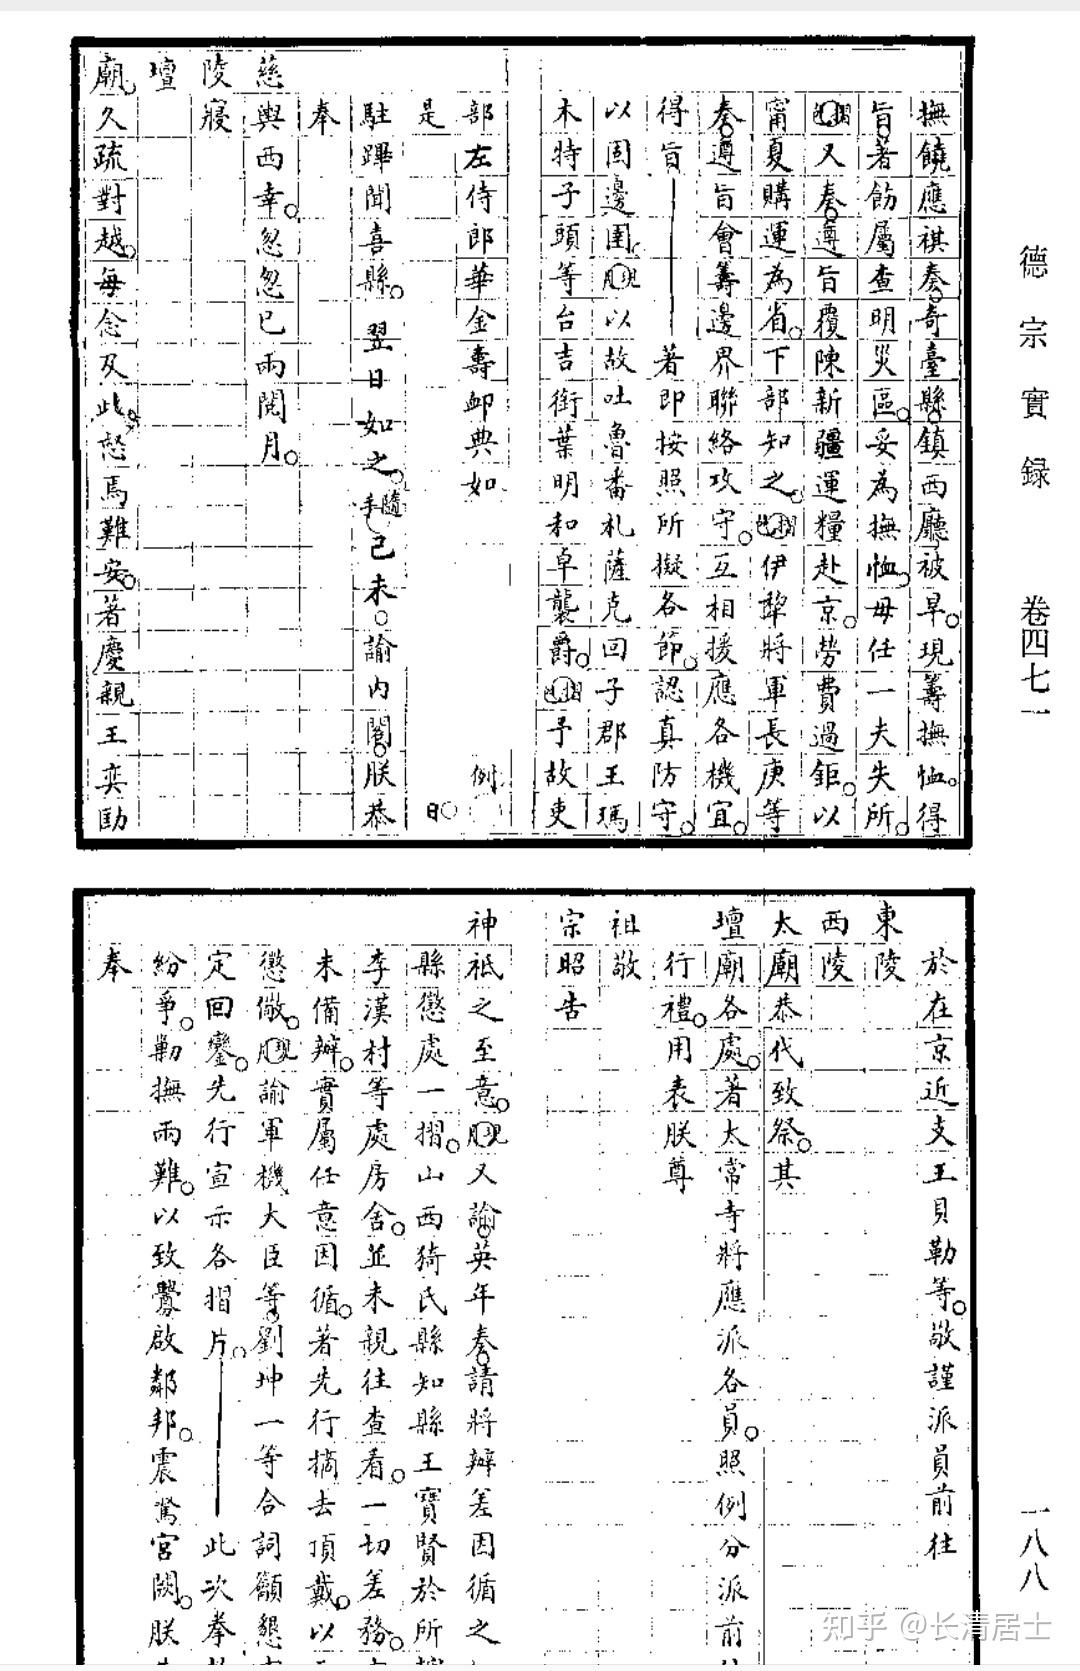 德宗實録 卷四七一
一八八
撫饒應祺奏奇臺縣鎮西廳被旱現籌撫恤得
旨著飭屬查明災區妥為撫恤毋任一夫失所
摺包又奏遵旨覆陳新疆運糧赴京勞費過鉅以
甯夏購運為省下部知之摺包伊犂將軍長庚等
奏遵旨會籌邊界聯絡攻守互相援應各機宜
得旨 著即按照所擬各節認真防守
以固邊圉現月以故吐魯番札薩克回子郡王瑪
木特子頭等台吉銜葉明和卓襲爵摺包予故吏
部左侍郎華金壽卹典如 例
是 日
駐蹕聞喜縣翌日如之隨手己未諭內閣朕恭
奉
慈輿西幸忽忽已兩閱月
陵寢
壇
廟久疏對越每念及此怒焉難安著慶親王奕劻
於在京近支王貝勒等敬謹派員前往
東陵
西陵
太廟恭代致祭其
壇廟各處著太常寺將應派各員照例分派前
行禮用表朕尊
祖敬
宗昭告
神祇之至意現月又諭英年奏請將辦差因循之
縣懲處一摺山西猗氏縣知縣王寶賢於所
李漢村等處房舍並未親往查看一切差務
未備辦實屬任意因循著先行摘去頂戴以
懲儆現月諭軍機大臣等劉坤一等合詞籲懇
定回鑾先行宣示各摺片 此次拳
紛爭勦撫兩難以致釁啟鄰邦震驚宮闕朕
奉
知乎 @长清居士